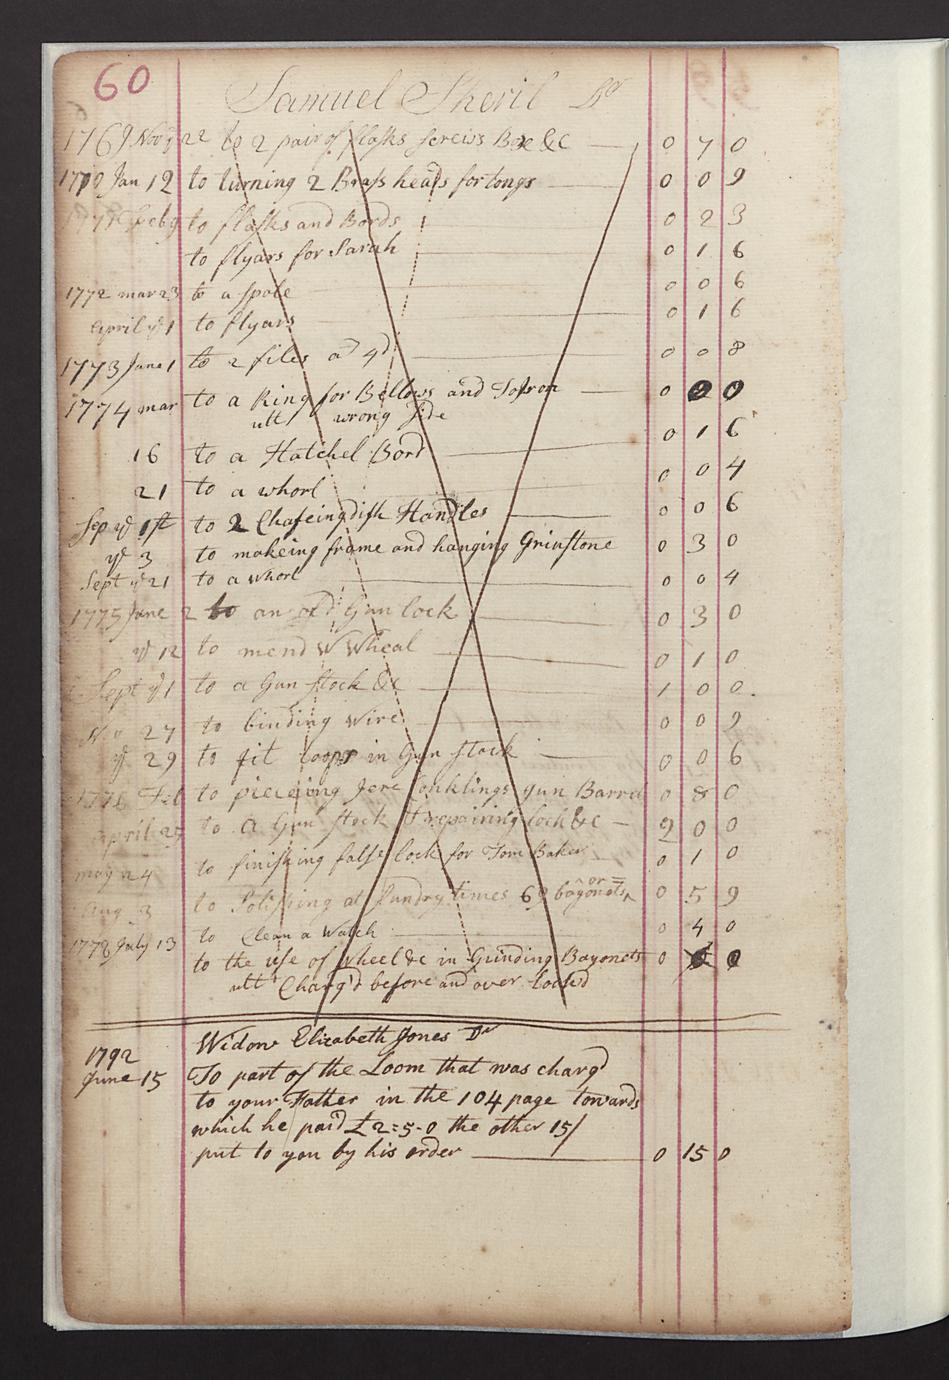 60
Samuel Sheril Dr
1769 Novr ye 22 to 2 pair of flasks screws Box &c 0 7 0
1770 Jan 12 to turning 2 Brass heads for tongs 0 0 9
Feb 9 to flasks and Bords 0 2 3
to flyars for Sarah 0 1 6
1772 mar 23 to a spole 0 0 6
April ye 1 to flyars 0 1 6
1773 June 1 to 2 files ad 4d 0 0 8
1774 mar to a Ring for Bellows and 0 0
wrong side
16 to a Hatchel Bord 0 1 6
21 to a whorl 0 0 4
Sep ye 1st to 2 Chafeingdish Handles 0 0 6
ye 3 to makeing frame and hanging Grinstone 0 3 0
Sept ye 21 to a whorl 0 0 4
1775 June 2 to an old Gun lock 0 3 0
ye 12 to mend W Wheal 0 1 0
Sept ye 1 to a Gun stock &c 1 0 0
No 27 to binding wire 0 0 9
ye 29 to fit loops in Gun stock 0 0 6
1776 Feb to pieceing Jere Conklings gun Barrel 0 8 0
April 27 to A Gun stock & repairing lock &c 2 0 0
may 24 to finishing false lock for Tom Baker 0 1 0
Aug 3 to Polishing at sundry times 69 bayonets 0 5 9
to Clean a Watch 0 4 0
1778 July 13 to the use of wheel &c in Grinding Bayonets 0 0
Charg'd before and over look'd
1792 Widow Elizabeth Jones Dr
June 15 To part of the Loom that was chargd
to your Father in the 104 page towards
which he paid £2=5-0 the other 15/
put to you by his order 0 15 0